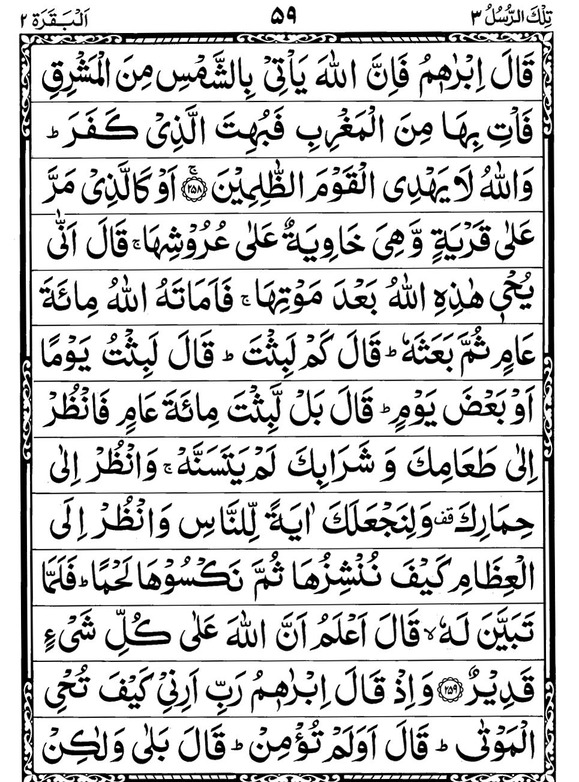 تِلْكَ الرُّسُلُ ٣ ٥٩ اَلْبَقَرَة ٢
قَالَ اِبْرٰهٖمُ فَاِنَّ اللّٰهَ يَاْتِيْ بِالشَّمْسِ مِنَ الْمَشْرِقِ
فَاْتِ بِهَا مِنَ الْمَغْرِبِ فَبُهِتَ الَّذِيْ كَفَرَ ؕ
وَاللّٰهُ لَا يَهْدِى الْقَوْمَ الظّٰلِمِيْنَ ۚ ﴿٢٥٨﴾ اَوْ كَالَّذِيْ مَرَّ
عَلٰى قَرْيَةٍ وَّ هِيَ خَاوِيَةٌ عَلٰى عُرُوْشِهَا ۚ قَالَ اَنّٰى
يُحْيٖ هٰذِهِ اللّٰهُ بَعْدَ مَوْتِهَا ۚ فَاَمَاتَهُ اللّٰهُ مِائَةَ
عَامٍ ثُمَّ بَعَثَهٗ ؕ قَالَ كَمْ لَبِثْتَ ؕ قَالَ لَبِثْتُ يَوْمًا
اَوْ بَعْضَ يَوْمٍ ؕ قَالَ بَلْ لَّبِثْتَ مِائَةَ عَامٍ فَانْظُرْ
اِلٰى طَعَامِكَ وَ شَرَابِكَ لَمْ يَتَسَنَّهْ ۚ وَانْظُرْ اِلٰى
حِمَارِكَ قف وَلِنَجْعَلَكَ اٰيَةً لِّلنَّاسِ وَانْظُرْ اِلَى
الْعِظَامِ كَيْفَ نُنْشِزُهَا ثُمَّ نَكْسُوْهَا لَحْمًا ؕ فَلَمَّا
تَبَيَّنَ لَهٗ ۙ قَالَ اَعْلَمُ اَنَّ اللّٰهَ عَلٰى كُلِّ شَيْءٍ
قَدِيْرٌ ﴿٢٥٩﴾ وَاِذْ قَالَ اِبْرٰهٖمُ رَبِّ اَرِنِيْ كَيْفَ تُحْيِ
الْمَوْتٰى ؕ قَالَ اَوَلَمْ تُؤْمِنْ ؕ قَالَ بَلٰى وَلٰكِنْ